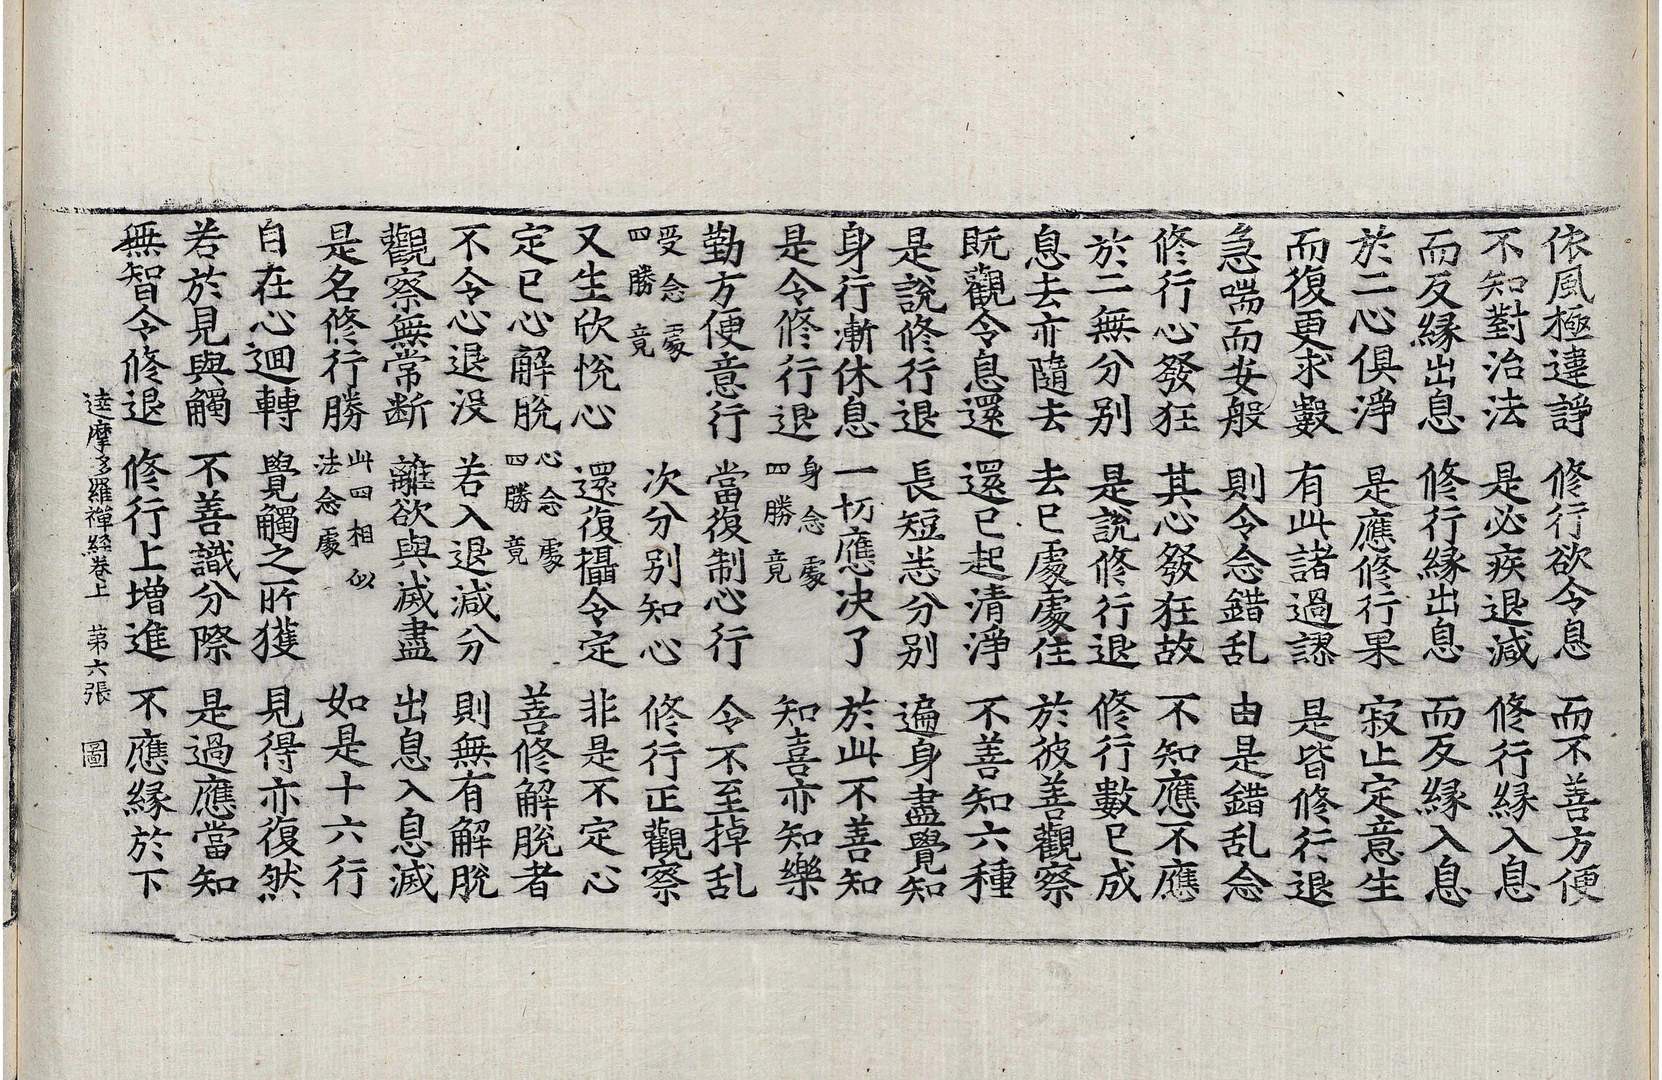 依風極違諍 修行欲令息 而不善方便
不知對治法 是必疾退減 修行緣入息
而反緣出息 修行緣出息 而反緣入息
於二心俱淨 是應修行果 寂止定意生
而復更求數 有此諸過謬 是皆修行退
急喘而安般 則令念錯乱 由是錯乱念
修行心發狂 其心發狂故 不知應不應
於二無分别 是說修行退 修行數已成
息去亦隨去 去已處處住 於彼善觀察
既觀令息還 還已起清淨 不善知六種
是說修行退 長短悉分别 遍身盡覺知
身行漸休息 一切應决了 於此不善知
是令修行退 身念處四勝竟 知喜亦知樂
勤方便意行 當復制心行 令不至掉乱
受念處四勝竟 次分别知心 修行正觀察
又生欣悅心 還復攝令定 非是不定心
定已心解脫 心念處四勝竟 善修解脫者
不令心退没 若入退減分 則無有解脫
觀察無常断 離欲與滅盡 出息入息滅
是名修行勝 此四相似法念處 如是十六行
自在心迴轉 覺觸之所獲 見得亦復然
若於見與觸 不善識分際 是過應當知
無智令修退 修行上增進 不應緣於下
達摩多羅禪經卷上 第六張 圖